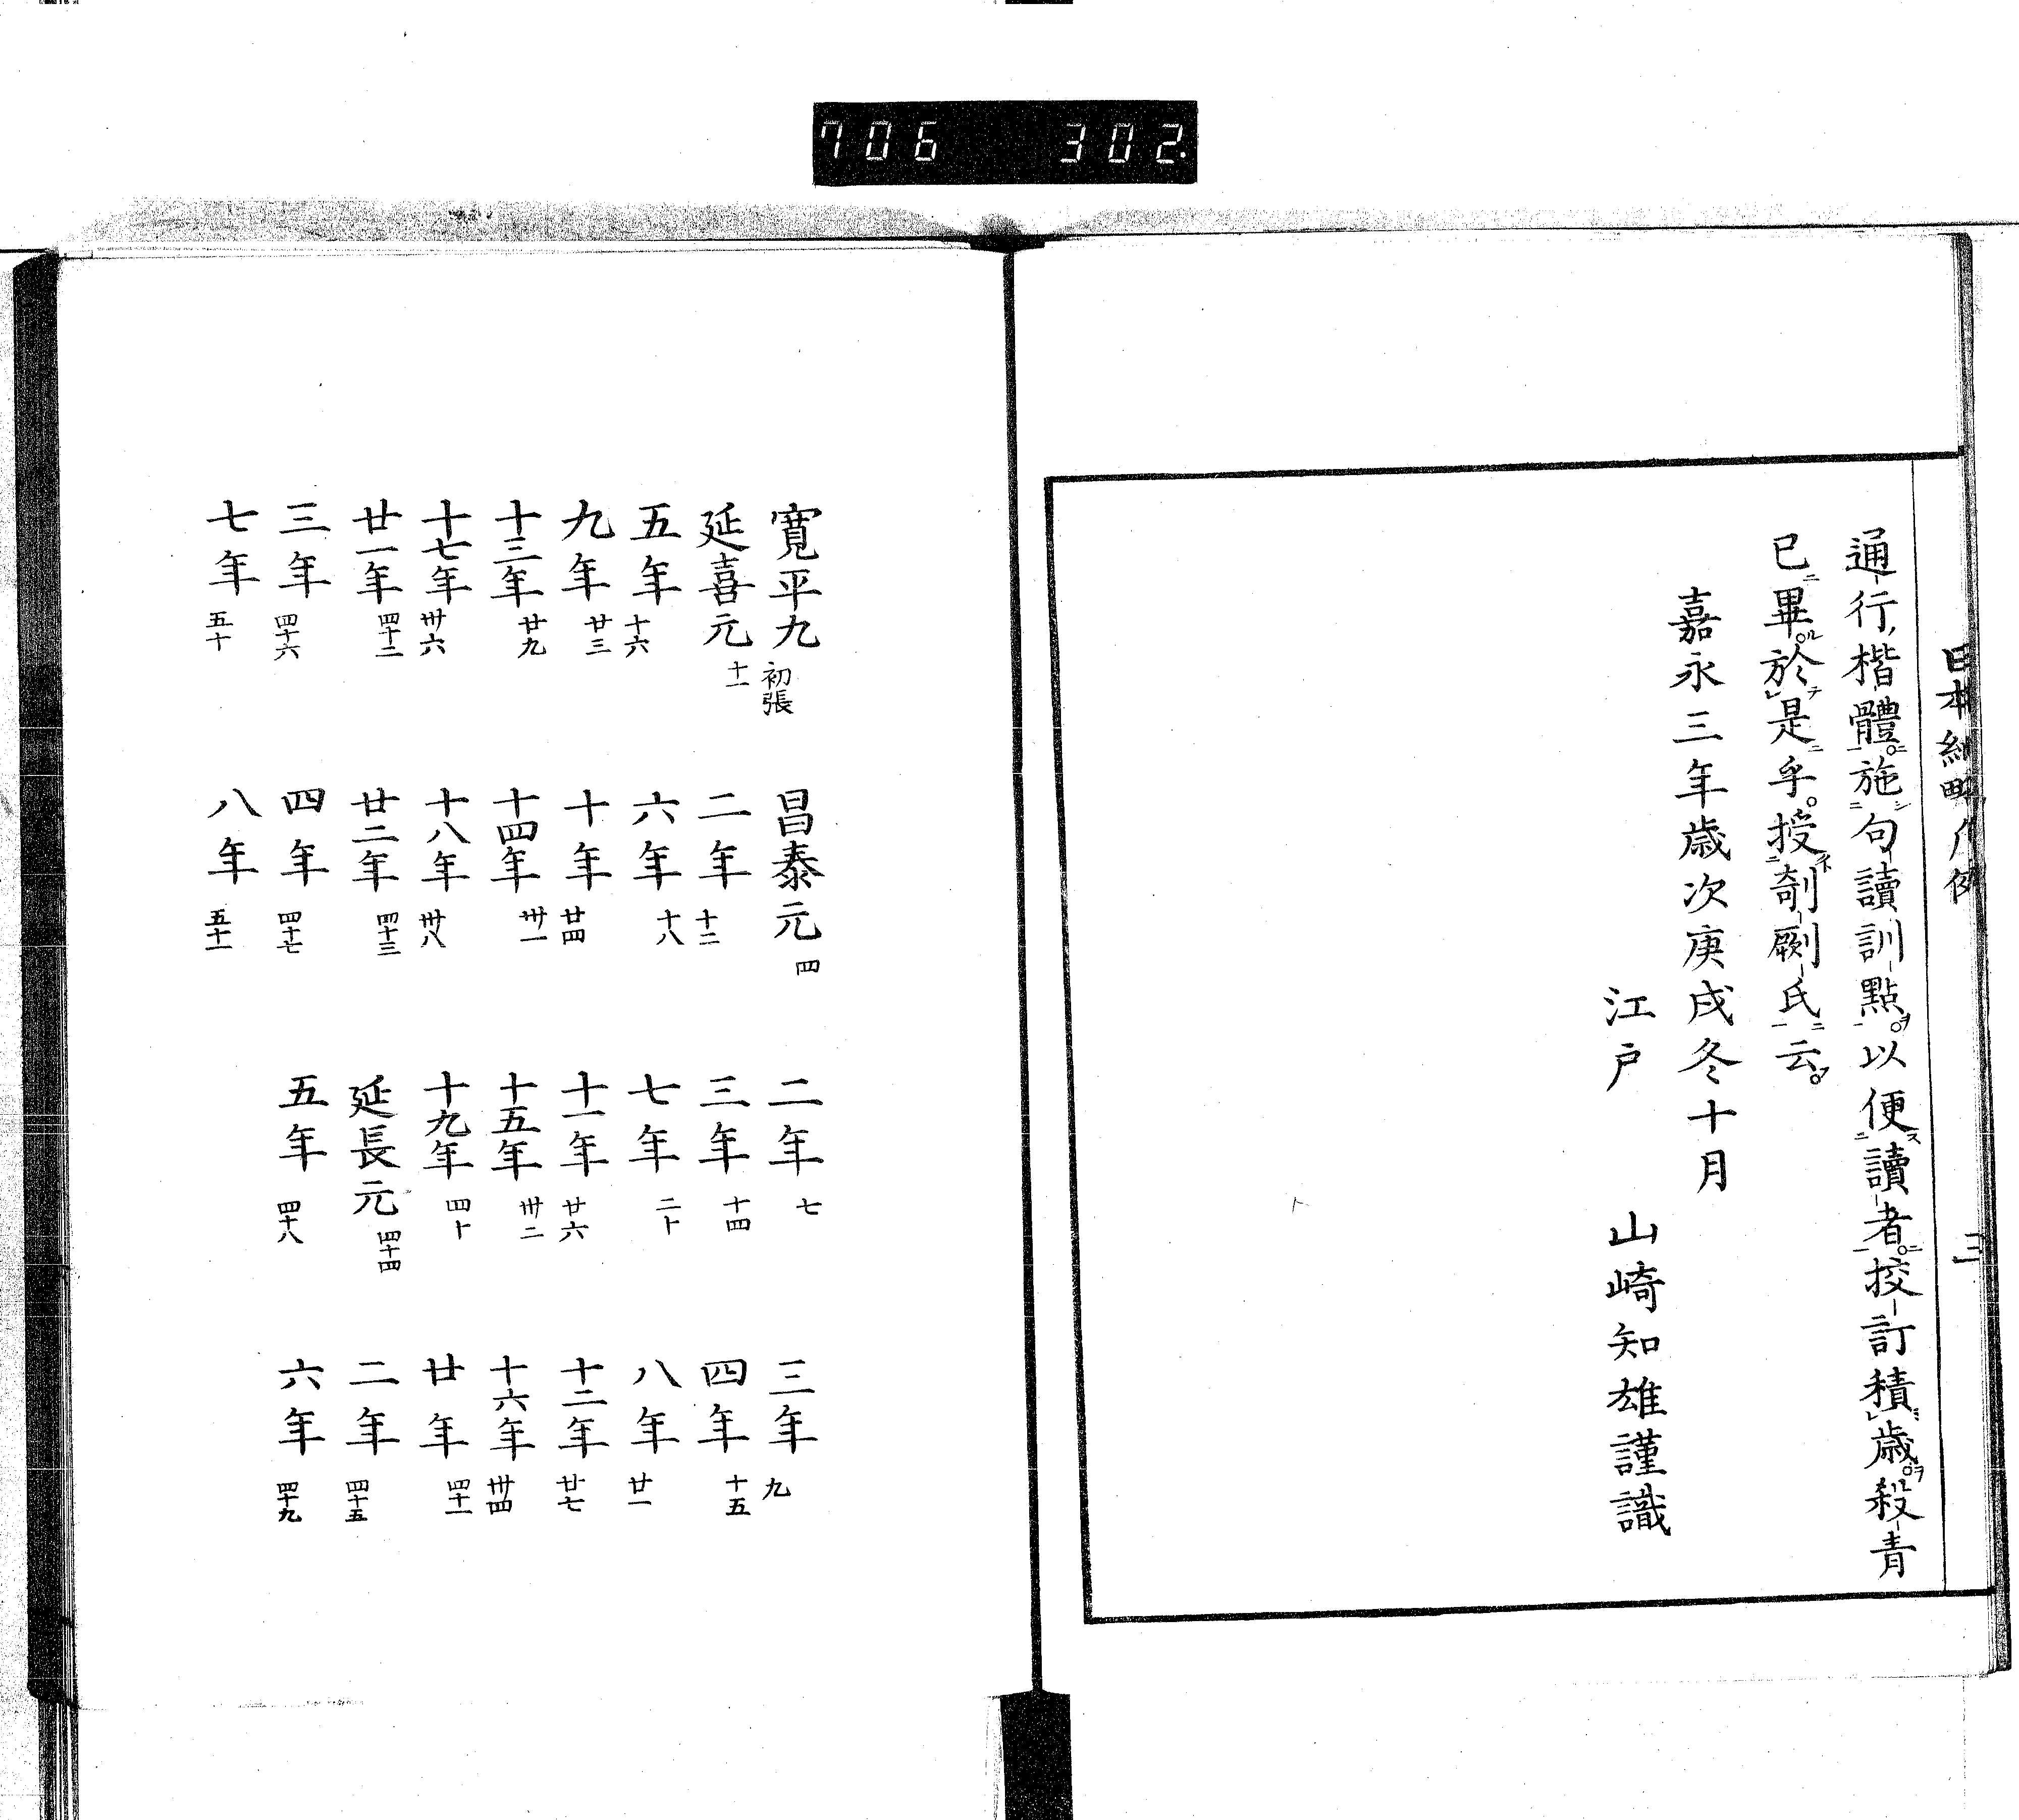 706 302.
日本紀略凡例 三
通行楷體施句讀訓點以便讀者挍訂積歳殺青
已畢於是乎授剞劂氏云
嘉永三年歳次庚戌冬十月
江戸 山崎知雄謹識
寛平九 初張 昌泰元 四 二年 七 三年 九
延喜元 十一 二年 十二 三年 十四 四年 十五
五年 十六 六年 十八 七年 二十 八年 廿一
九年 廿三 十年 廿四 十一年 廿六 十二年 廿七
十三年 廿九 十四年 卅一 十五年 卅二 十六年 卅四
十七年 卅六 十八年 卅八 十九年 四十 廿年 四十一
廿一年 四十二 廿二年 四十三 延長元 四十四 二年 四十五
三年 四十六 四年 四十七 五年 四十八 六年 四十九
七年 五十 八年 五十一